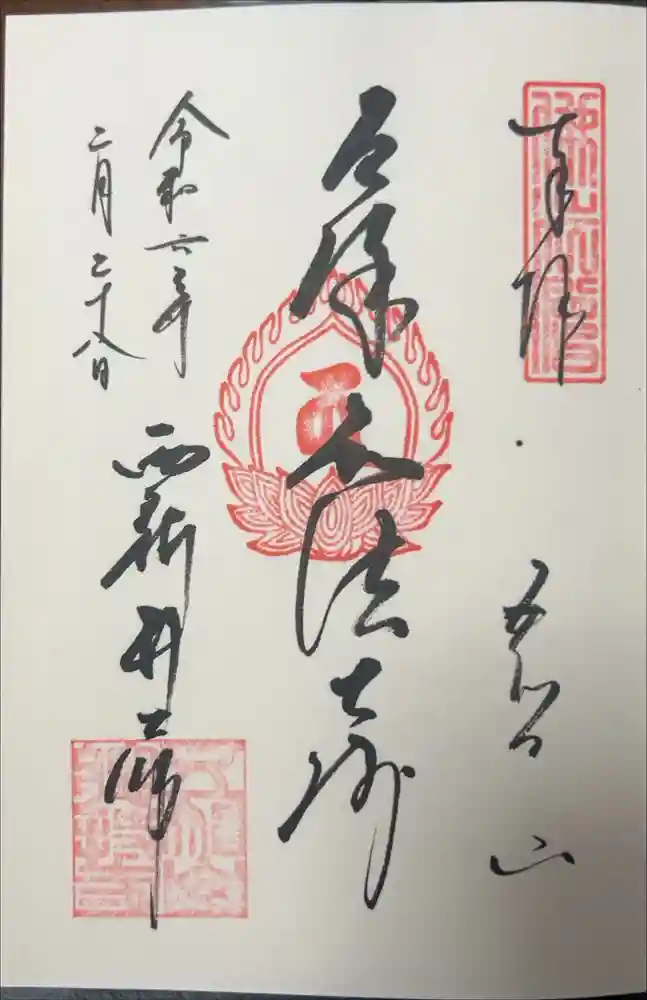 奉拝
五智山
厄除弘法大師
令和六年
二月二十八日
西新井大師